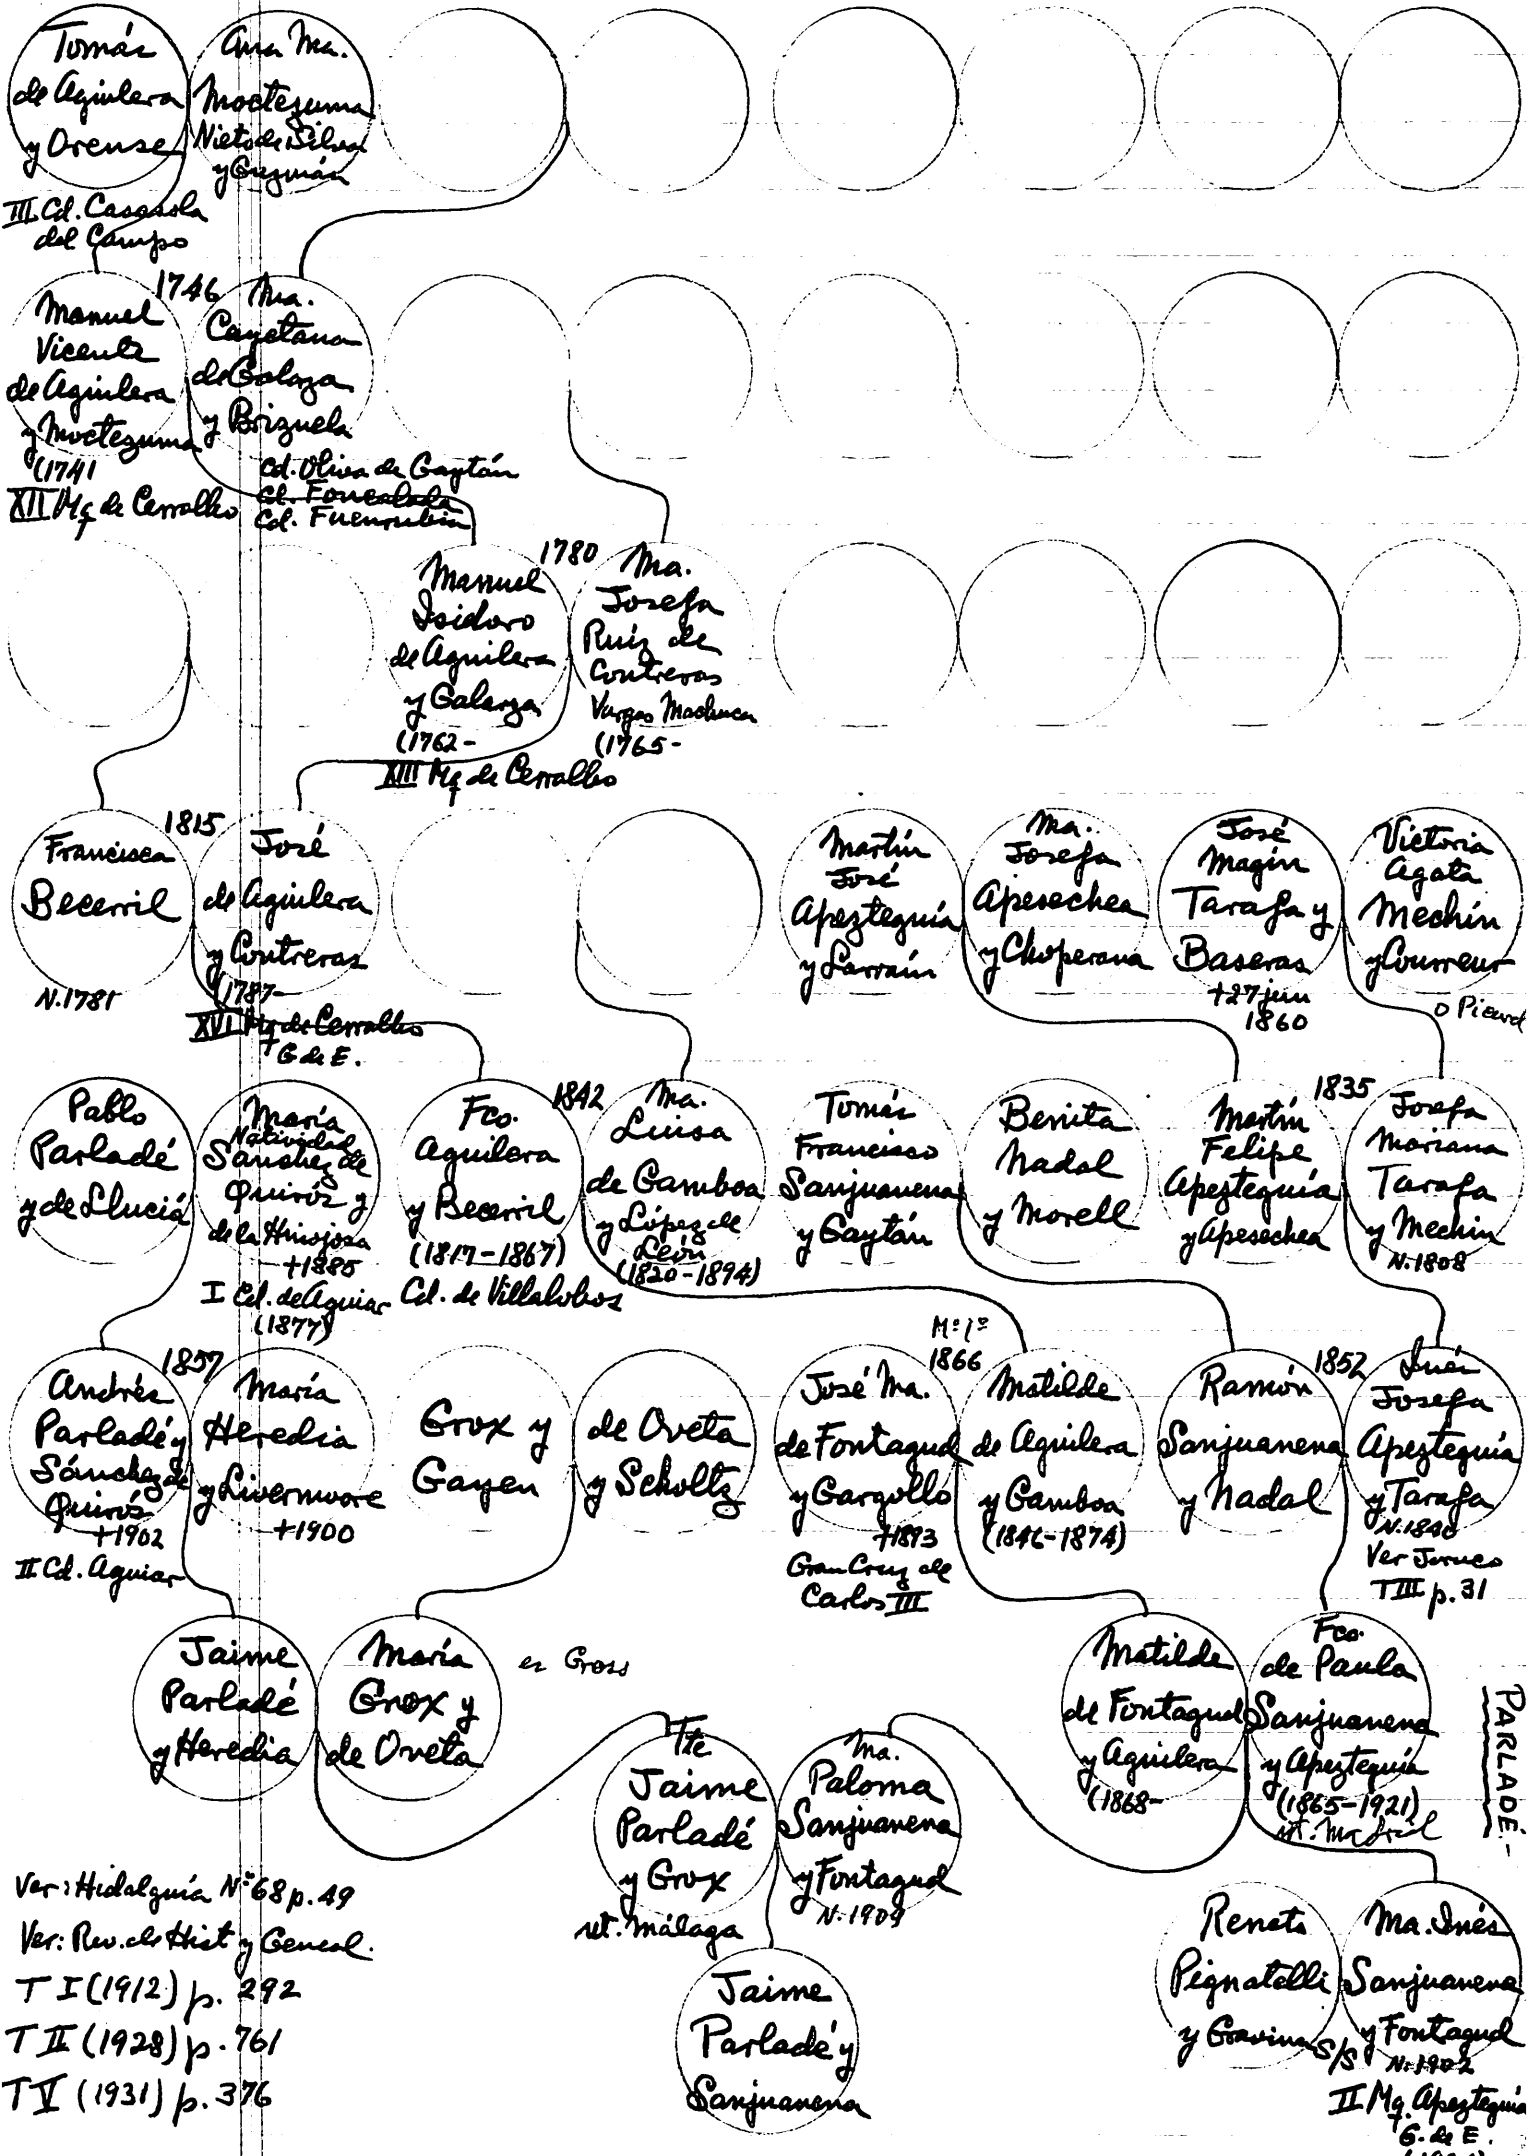 Tomás
de Aguilera
y Orense
III Cd. Casasola
del Campo
Ana Ma.
Moctezuma
Nieto de Silva
y Guzmán
1746
Manuel
Vicente
de Aguilera
y Moctezuma
(1741
XII Mq de Cerralbo
Ma.
Cayetana
de Galarza
y Brizuela
Cd. Oliva de Gaytán
Cd. Foncalada
Cd. Fuenrubia
1780
Manuel
Isidoro
de Aguilera
y Galarza
(1762-
XIII Mq de Cerralbo
Ma.
Josefa
Ruiz de
Contreras
Vargas Machuca
(1765-
1815
Francisca
Becerril
N.1781
José
de Aguilera
y Contreras
(1787-
XVI Mq de Cerralbo
G de E.
Martín
José
Apezteguía
y Larraín
Ma.
Josefa
Apesechea
y Choperana
José
Magín
Tarafa y
Baseras
+27 jun
1860
Victoria
Agata
Mechin
y Courreur
o Picard
Pablo
Parladé
y de Lluciá
María
Natividad
Sánchez de
Quiróz y
de la Hinojosa
+1885
I Cd. de Aguiar
(1877)
1842
Fco.
Aguilera
y Becerril
(1817-1867)
Cd. de Villalobos
Ma.
Luisa
de Gamboa
y López de
León
(1820-1894)
Tomás
Francisco
Sanjuanena
y Gaytán
Benita
Nadal
y Morell
1835
Martín
Felipe
Apezteguía
y Apesechea
Josefa
Mariana
Tarafa
y Mechin
N.1808
1857
Andrés
Parladé y
Sánchez de
Quirós
+1902
II Cd. Aguiar
María
Heredia
y Livermoore
+1900
Grox y
Gayen
de Oveta
y Scholtz
Mº 1º
1866
José Ma.
de Fontagud
y Gargollo
+1893
Gran Cruz de
Carlos III
Matilde
de Aguilera
y Gamboa
(1846-1874)
1852
Ramón
Sanjuanena
y Nadal
Inés
Josefa
Apezteguía
y Tarafa
N.1840
Ver Jaruco
T III p. 31
Jaime
Parladé
y Heredia
María
Grox y
de Oveta
es Gross
Matilde
de Fontagud
y Aguilera
(1868-
Fco.
de Paula
Sanjuanena
y Apezteguía
(1865-1921)
nt. Madrid
PARLADÉ.-
Tte
Jaime
Parladé
y Grox
nt. Málaga
Ma.
Paloma
Sanjuanena
y Fontagud
N. 1909
Jaime
Parladé y
Sanjuanena
Renato
Pignatelli
y Gravina
S/S
Ma. Inés
Sanjuanena
y Fontagud
N.1902
II Mq. Apezteguía
G. de E.
Ver: Hidalguía Nº 68 p. 49
Ver: Rev. de Hist y Geneal.
T I (1912) p. 292
T II (1928) p. 761
T V (1931) p. 376